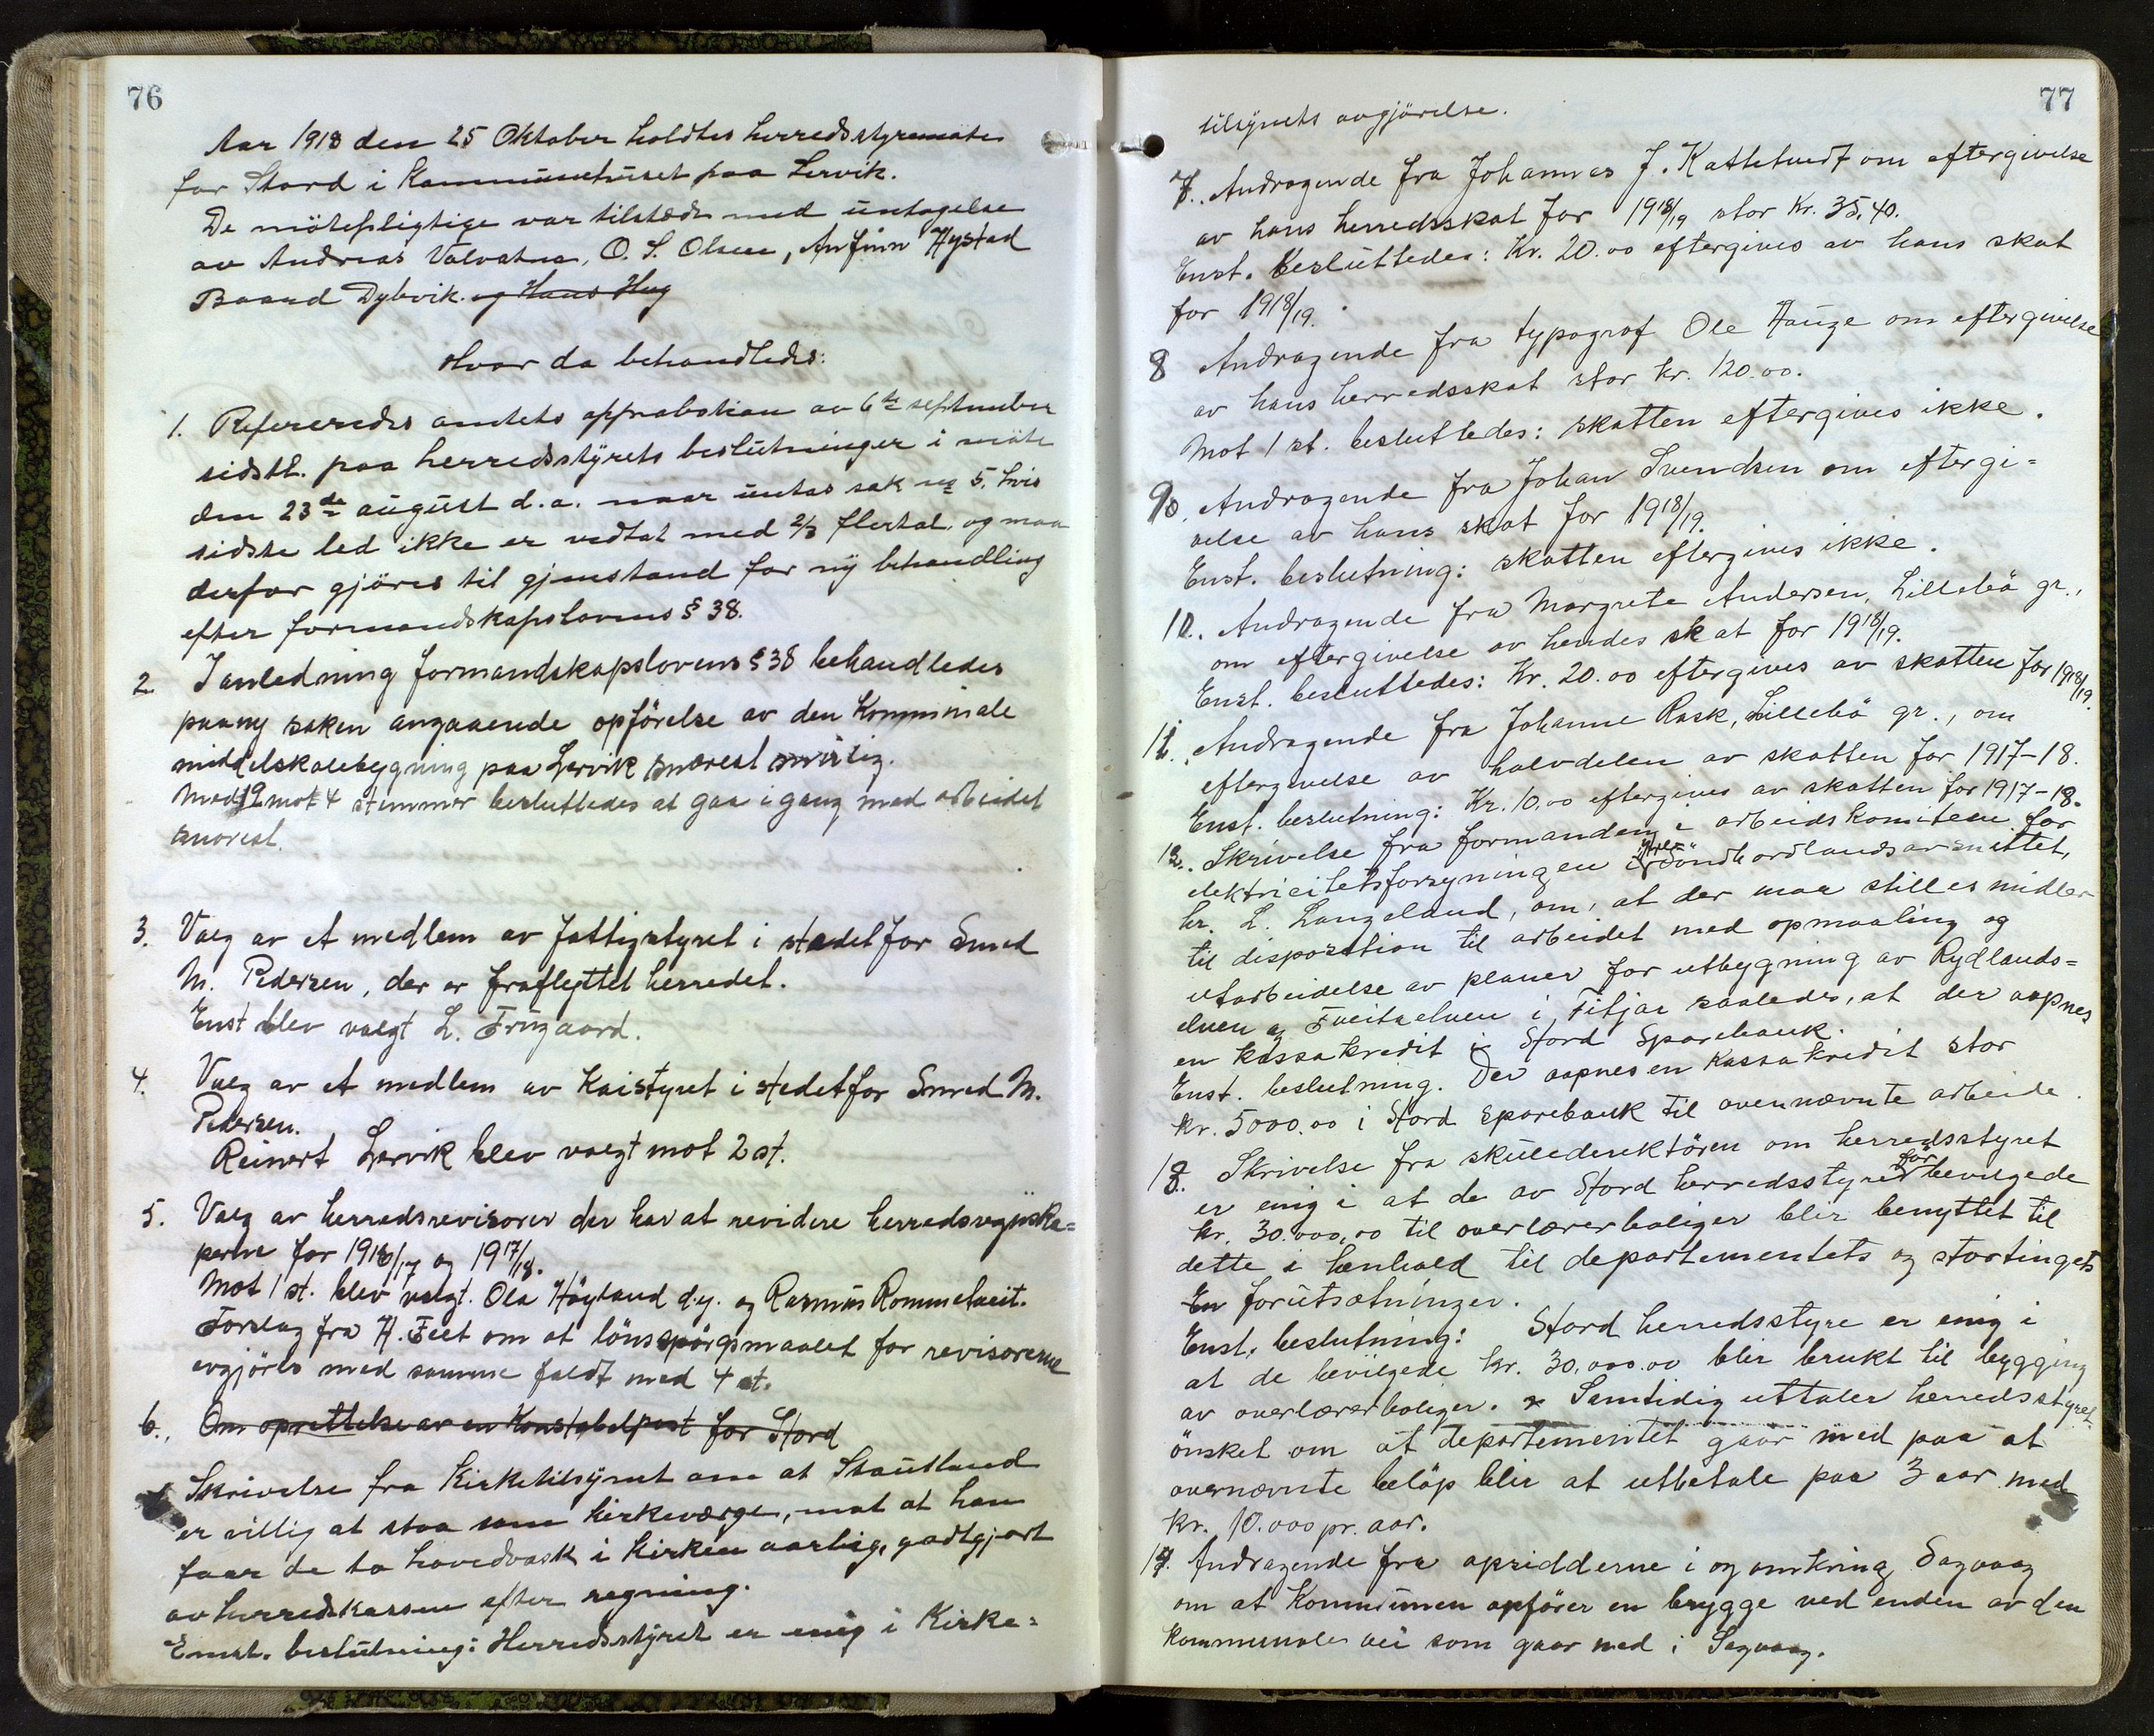 76
Aar 1918 den 25 Oktober holdtes herredsstyremøte
for Stord i Kommunehuset paa Lervik.
De mötepligtige var tilstede med untagelse
av Andreas Valvatna, O. S. Olsen, Anfinn Hystad
Baard Dybvik. og Hans Hug
Hvor da behandledes:
1. Refereredes amtets approbation av 6te september
sidstl. paa herredsstyrets beslutninger i möte
den 23de august d.a. naar untas sak no 5, hvis
sidste led ikke er vedtat med 2/3 flertal, og maa
derfor gjöres til gjenstand for ny behandling
efter formandskapslovens § 38.
2. I anledning formandskapslovens § 38 behandledes
paany saken angaaende opförelse av den Kommunale
middelskolebygning paa Lervik snarest muelig.
Med 19 mot 4 stemmer besluttedes at gaa igang med arbeidet
snarest.
3. Valg av et medlem av fattigstyret i stedet for Smed
M. Pedersen, der er fraflyttet herredet.
Enst blev valgt L. Frugaard.
4. Valg av et medlem av Kaistyret i stedet for Smed M.
Pedersen.
Reinert Lervik blev valgt mot 2 st.
5. Valg av herredsrevisorer der har at revidere herredsregnska=
perne for 1916/17 og 1917/18.
Mot 1 st. blev valgt. Ola Höyland d.y. og Rasmus Rommetveit.
Forslag fra H. Feet om at lönsspörgsmaalet for revisorerne
avgjöres med samme faldt med 4 st.
6. Om oprettelse av en Konstabelpost for Stord
Skrivelse fra Kirketilsynet om at Stautland
er villig at staa som kirkeværge, mot at han
faar de to hovedvask i Kirken aarlig, godtgjort
av herredskassen efter regning.
Enst. beslutning: Herredsstyret er enig i Kirke=
77
tilsynets avgjörelse.
7. Andragende fra Johannes J. Kattatveit om eftergivelse
av hans herredsskat for 1918/19 stor Kr. 35,40.
Enst. besluttedes: Kr. 20.00 eftergives av hans skat
for 1918/19.
8 Andragende fra typograf Ole Hauge om eftergivelse
av hans herredsskat stor kr. 120.00.
Mot 1 st. besluttedes: skatten eftergives ikke.
9. Andragende fra Johan Svendsen om eftergi=
velse av hans skat for 1918/19.
Enst. beslutning: skatten eftergives ikke.
10. Andragende fra Margrete Andersen, Lillebö gr.,
om eftergivelse av hendes skat for 1918/19.
Enst. besluttedes: Kr. 20.00 eftergives av skatten for 1918/19.
11. Andragende fra Johanne Rask, Lillebö gr., om
eftergivelse av halvdelen av skatten for 1917-18.
Enst. beslutning: Kr. 10,00 eftergives av skatten for 1917-18.
12. Skrivelse fra formanden i arbeidskomiteen for
elektricitetsforsyningen i ytre Söndhordlandsavsnittet,
hr. L. Langeland, om, at der maa stilles midler
til disposition til arbeidet med opmaaling og
utarbeidelse av planer for utbygning av Rydlands=
elven og Tveitaelven i Fitjar saaledes, at der aapnes
en kassakredit i Stord Sparebank.
Enst. beslutning. Der aapnes en Kassakredit stor
kr. 5000.00 i Stord Sparebank til ovennævnte arbeide.
13. Skrivelse fra skuledirektören om herredsstyret
er enig i at de av Stord herredsstyre för bevilgede
kr. 30.000,00 til overlærerboliger blir benyttet til
dette i henhold til departementets og stortingets
En forutsætninger.
Enst. beslutning: Stord herredsstyre er enig i
at de bevilgede kr. 30.000.00 blir brukt til bygging
av overlærerboliger. Samtidig uttaler herredsstyret
önsket om at departementet gaar med paa at
overnævnte belöp blir at utbetale paa 3 aar med
kr. 10.000 pr. aar.
14. Andragende fra opsidderne i og omkring Sagvaag
om at Kommunen opförer en brygge ved enden av den
kommunale vei som gaar ned i Sagvaag.